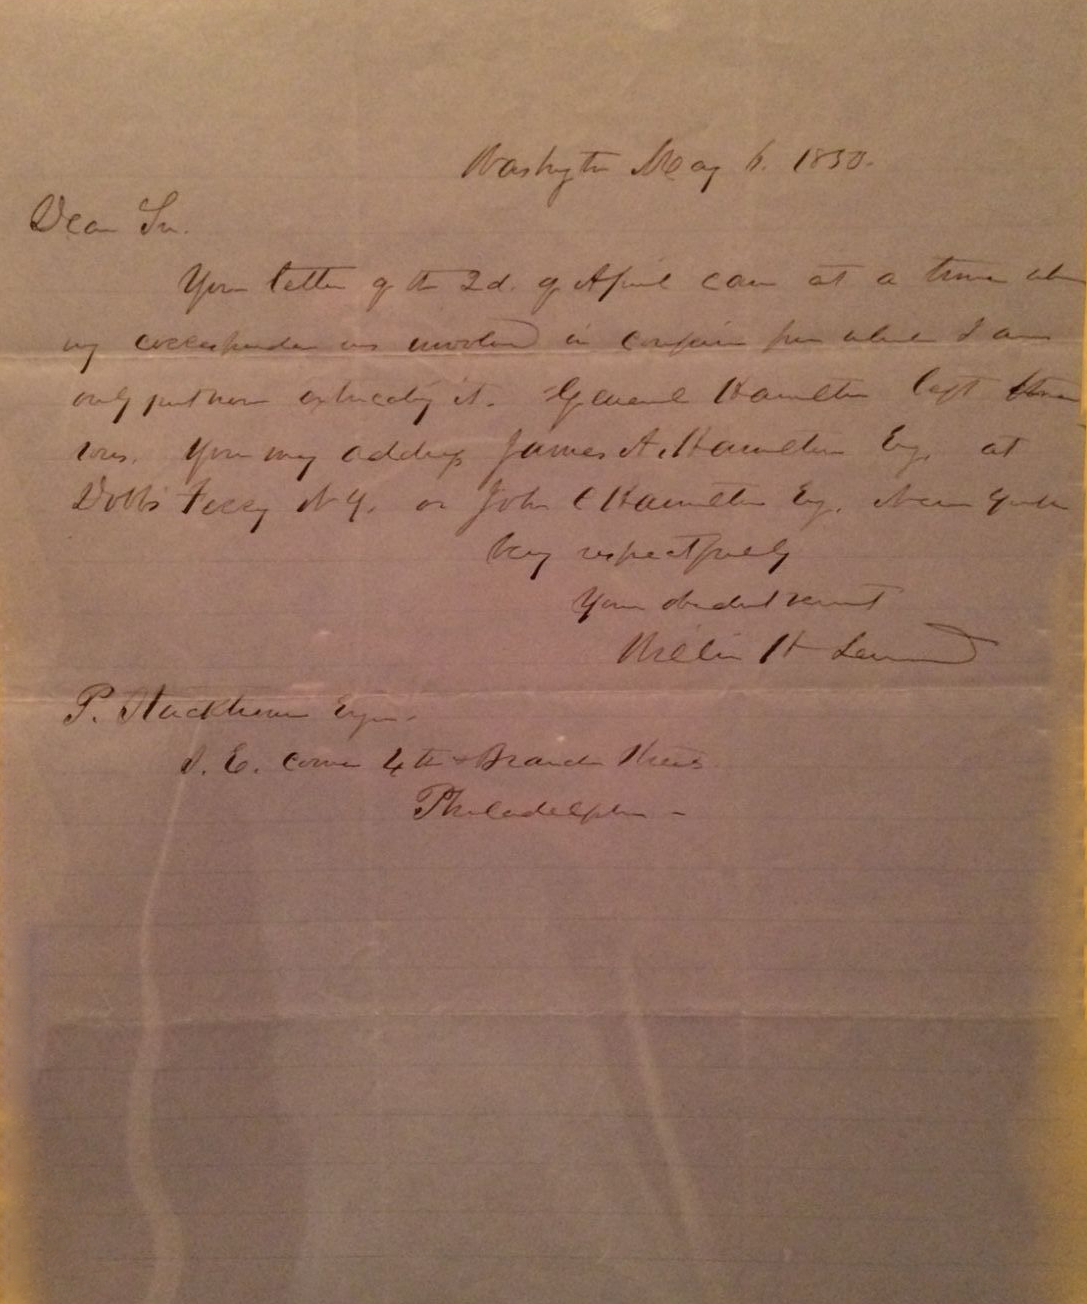 Washington May 6. 1850.
Dear Sir.
Your letter of the 2d. of April came at a time when
my correspondence was involved in confusion from which I am
only just now extricating it. General Hamilton left three
sons. You may address James A. Hamilton Esq. at
Dobb's Ferry N Y. or John C Hamilton Esq. New York
Very respectfully
Your obedient servant
William H Seward
P. Stackhouse Esqr.
S. E. corner 4th & Branch Streets
Philadelphia -